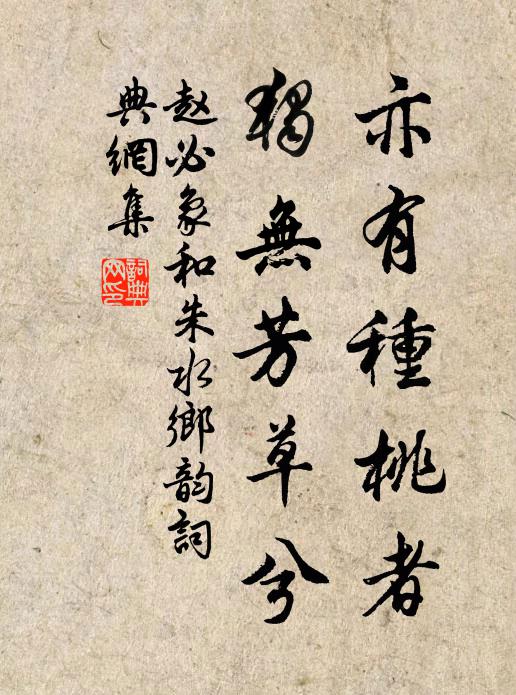 亦有種桃者
獨無芳草兮
赵必象和朱水鄉韵詞
典網集
詞典
网印